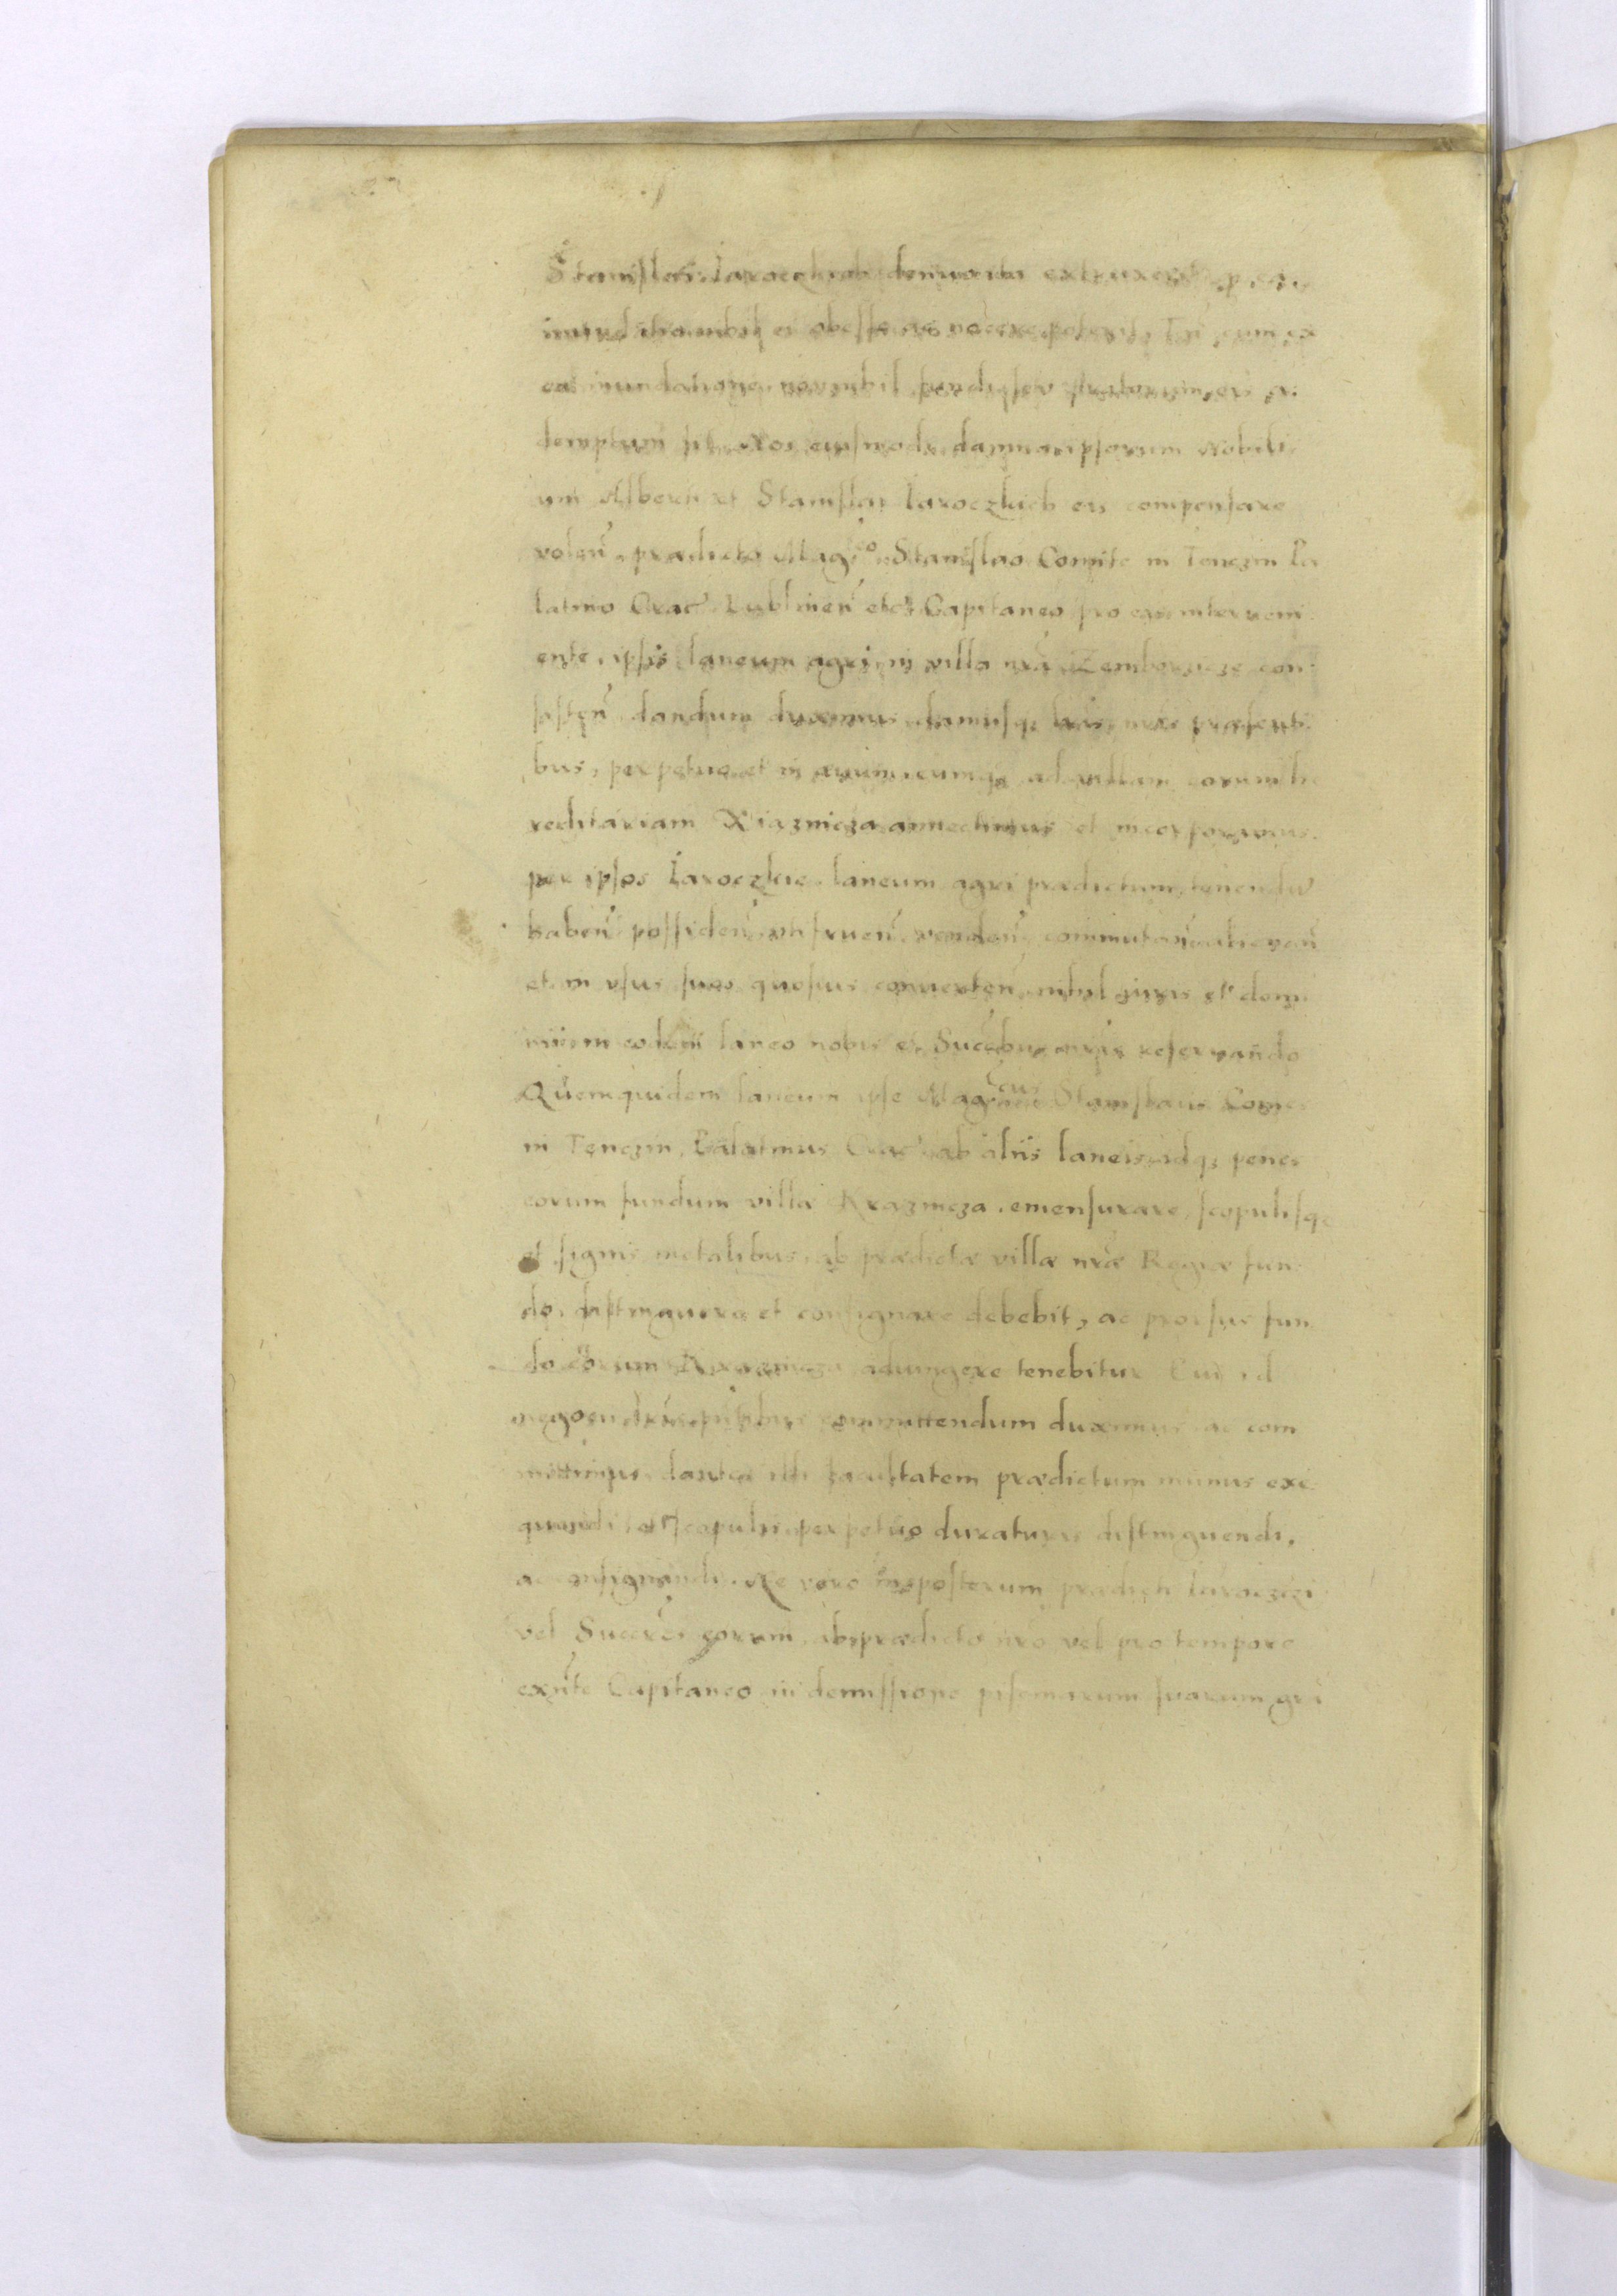 Stanislai Iaroczkich denuo ita extruxerit
inund nihil ei obesse ac nocere poterit, Tñ cum ex
ea inundatione nonnihil fundis seu pratorum eis a.
demptum sit. Nos eiusmodi damna ipsorum Nobili
um Alberti et Stanislai Iaroczkich eis compensare
volen̄, prædicto Mag:co Stanislao Comite in Tenczin Pa
latino Crac̄. Lublinen̄ etc Capitaneo pro eis interueni
ente, ipsis laneum agri in villa nrã Zemborzicze con
sisten̄ dandum duximus damusq; lris nris præsenti
bus, perpetuo et in æuum eumq; ad villam eorum hæ
reditariam Krazmicza annectimus et incorporamus.
per ipsos Iaroczkie laneum agri prædictum tenendū
haben̄ possiden̄ vtifruen̄ venden̄ commutan̄ alienan̄
et in vsus suos quosuis conuerten̄ nihil iuris et domi
nii in eodem laneo nobis et Succ̄bus nris reseruando
Quemquidem laneum ipse Mag:cus Stanislaus Comes
in Tenczin, Palatinus Crac̄ ab aliis laneis idq; penes
eorum fundum villæ Krazmicza emensurare, scopulisq;
et signis metalibus, ab prædictæ villæ nrãe Regiæ fun
do, distinguere et consignare debebit, ac prorsus fun
do eorum Krazmicza adiungere tenebitur Cui id
negocii lris præsentibus committendum duximus ac com
mittimus dantes illi facultatem prædictum munus exe
quendi et scopulis perpetuo duraturis distinguendi,
ac consignandi. Ne vero in posterum prædicti Iaroczczi
vel Succ̄res eorum, ab prædicto nrõ vel pro tempore
exn̄te Capitaneo in demissione piscinarum suarum gra